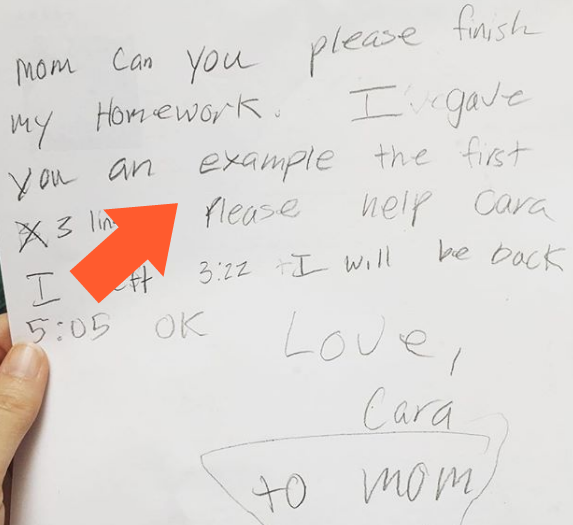 mom can you please finish
my Homework. I've gave
you an example the first
3 please help Cara
I 3:22 + I will be back
5:05 OK
Love,
Cara
to mom